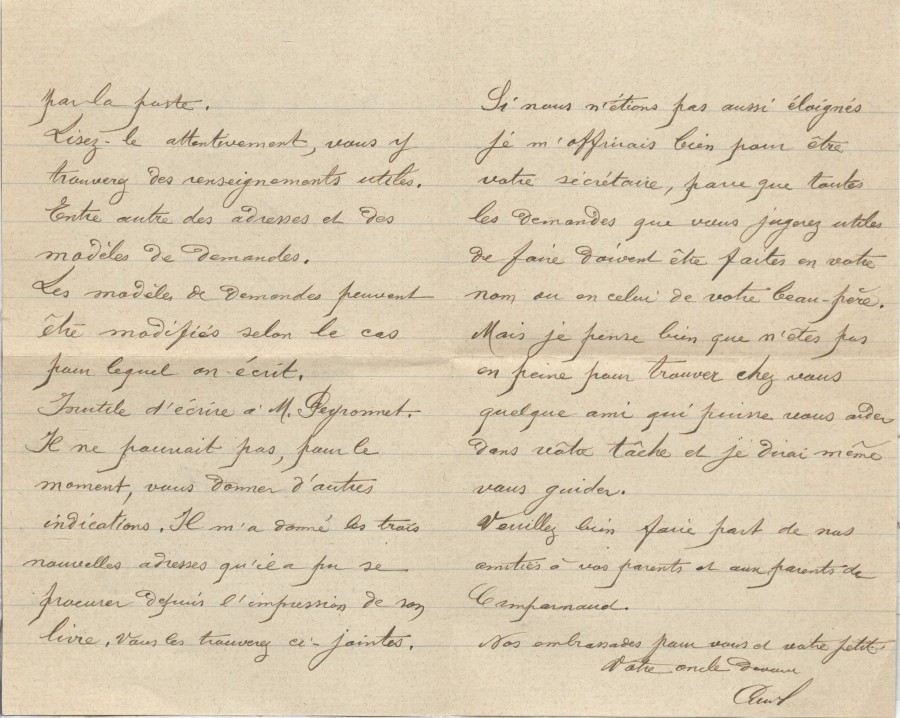 par la poste.
Lisez-le attentivement, vous y
trouverez des renseignements utiles.
Entre autre des adresses et des
modèles de demandes.
Les modèles de demandes peuvent
être modifiés selon le cas
pour lequel on écrit.
Inutile d'écrire à M. Peyronnet.
Il ne pourrait pas, pour le
moment, vous donner d'autres
indications. Il m'a donné les trois
nouvelles adresses qu'il a pu se
procurer depuis l'impression de son
livre. Vous les trouverez ci-jointes.
Si nous n'étions pas aussi éloignés
je m'offrirais bien pour être
votre sécrétaire, parce que toutes
les demandes que vous jugerez utiles
de faire doivent être faites en votre
nom ou en celui de votre beau-père.
Mais je pense bien que n'êtes pas
en peine pour trouver chez vous
quelque ami qui puisse vous aider
dans vôtre tâche et je dirai même
vous guider.
Veuillez bien faire part de nos
amitiés à vos parents et aux parents de
Camparnaud.
Nos embrassades pour vous et votre petit.
Votre oncle